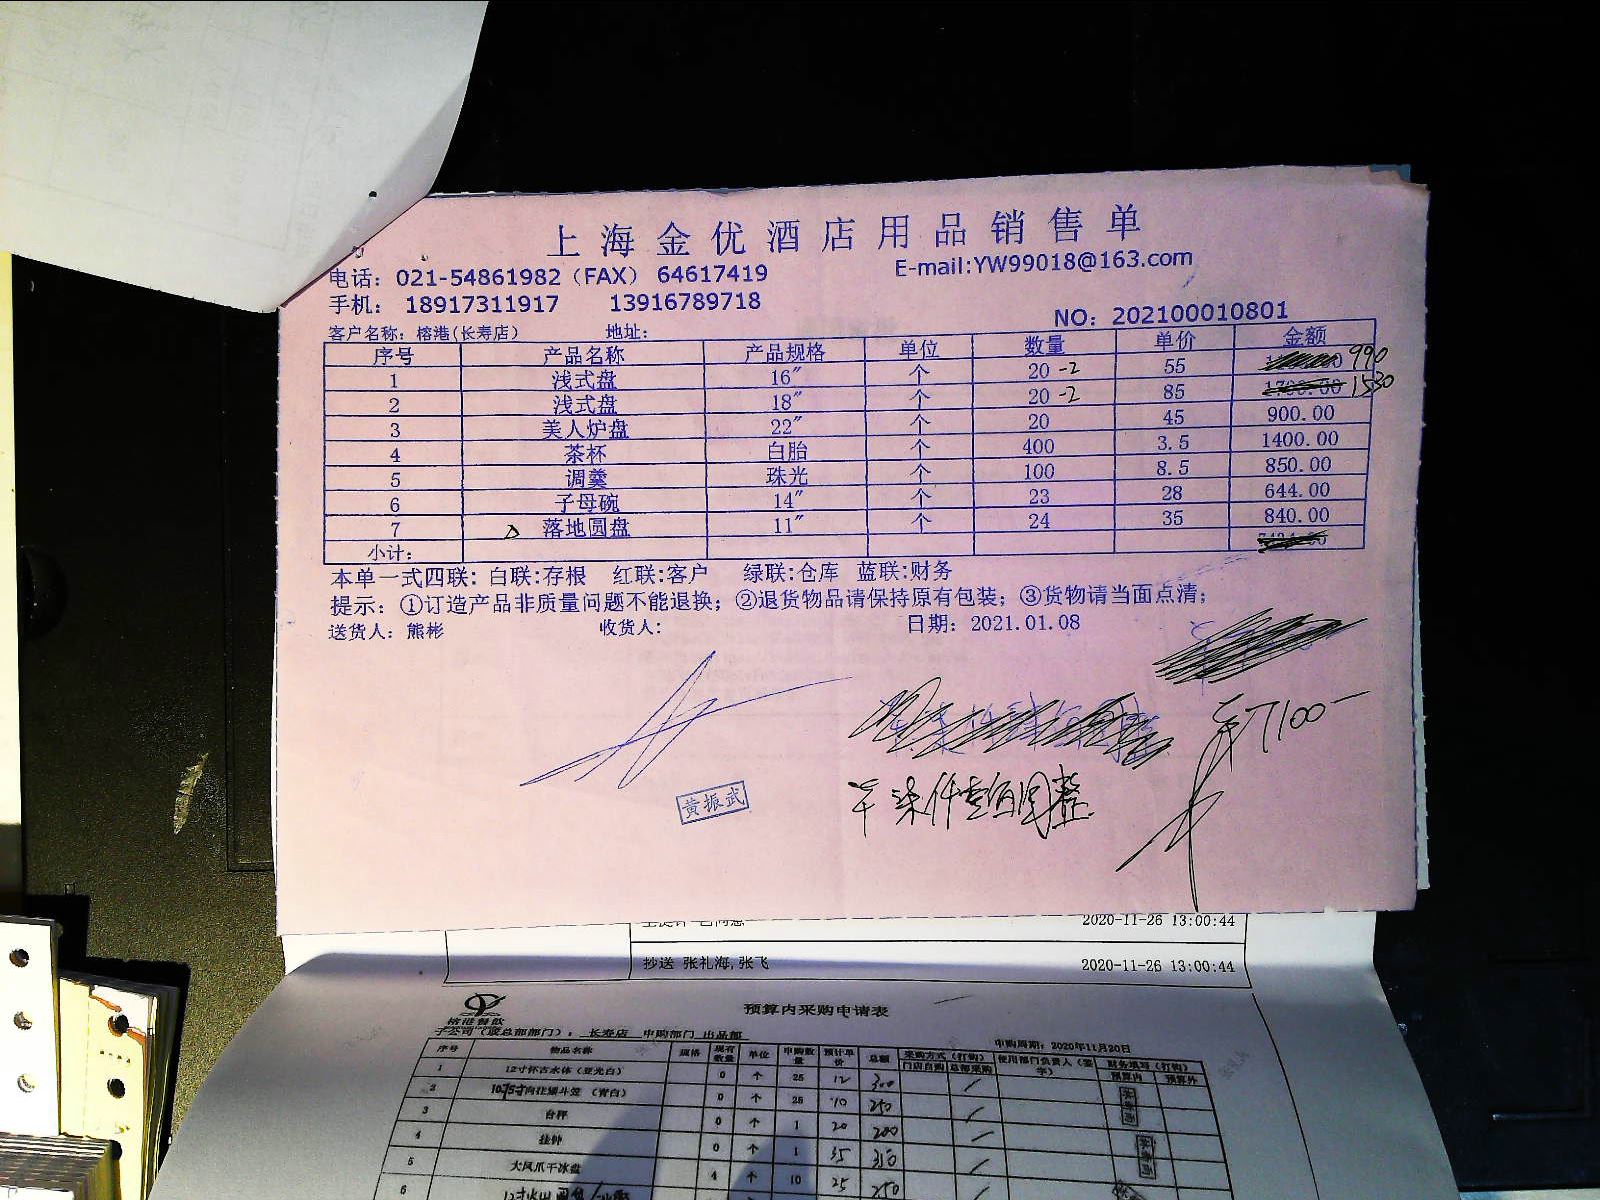 上海金优酒店用品销售单
电话：021-54861982（FAX） 64617419 E-mail:YW99018@163.com
手机： 18917311917 13916789718
NO：202100010801
客户名称：榕港(长寿店) 地址：
序号 产品名称 产品规格 单位 数量 单价 金额
1 浅式盘 16″ 个 20 -2 55 990
2 浅式盘 18″ 个 20 -2 85 1700.00 1530
3 美人炉盘 22″ 个 20 45 900.00
4 茶杯 白胎 个 400 3.5 1400.00
5 调羹 珠光 个 100 8.5 850.00
6 子母碗 14″ 个 23 28 644.00
7 落地圆盘 11″ 个 24 35 840.00
小计：
本单一式四联：白联:存根 红联:客户 绿联:仓库 蓝联:财务
提示：①订造产品非质量问题不能退换；②退货物品请保持原有包装；③货物请当面点清；
送货人：熊彬 收货人： 日期：2021.01.08
7100-
柒仟壹佰圆整
黄振武
2020-11-26 13:00:44
抄送 张礼海,张飞 2020-11-26 13:00:44
榕港餐饮
预算内采购申请表
子公司（或总部部门）： 长寿店 申购部门 出品部 申购周期：2020年11月20日
序号 物品名称 规格 现有数量 单位 申购数量 预计单价 总额 采购方式（打钩） 使用部门负责人（签字） 财务填写（打钩）
门店自购 总部采购 预算内 预算外
1 12寸怀古水体（亚光白） 0 个 25 12 300
2 0 个 25 10 250
3 台秤 0 个 1 20 200
4 挂钟 0 个 1 35 350
5 大凤爪干冰盘 4 个 10 25 250
6